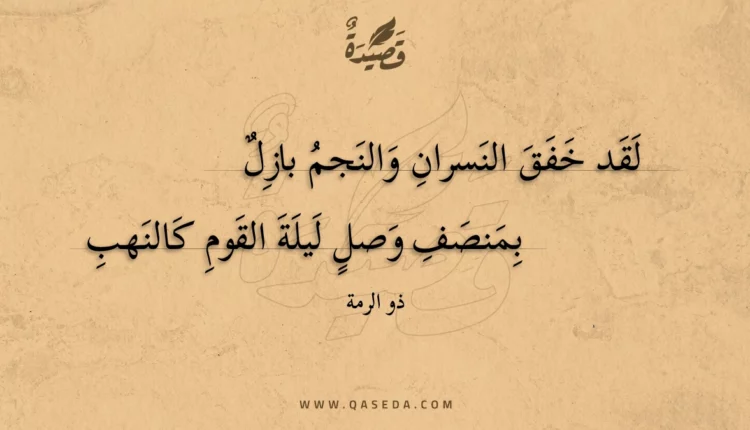 قَصِيدَةٌ
لَقَد خَفَقَ النَسرانِ وَالنَجمُ بازِلٌ
بِمَنصَفِ وَصلٍ لَيلَةَ القَومِ كَالنَهبِ
ذو الرمة
WWW.QASEDA.COM